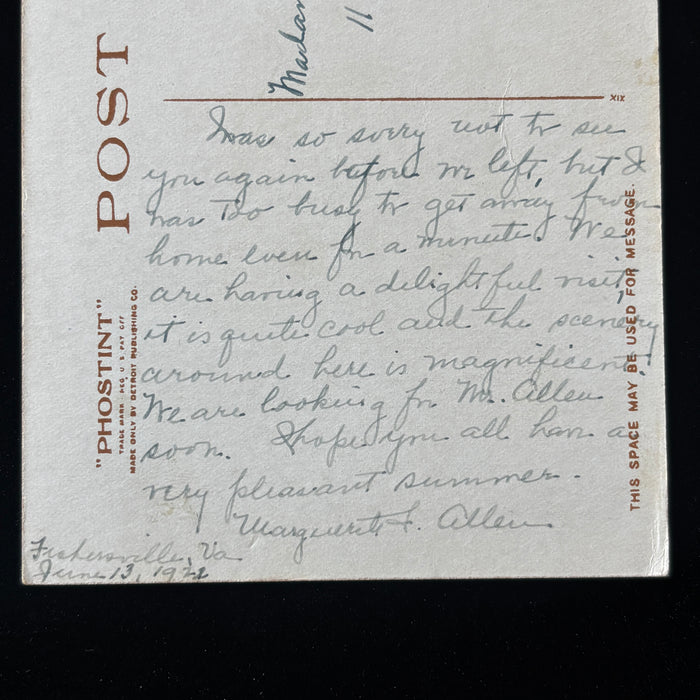 POST
"PHOSTINT"
TRADE MARK - REG. U. S. PAT. OFF
MADE ONLY BY DETROIT PUBLISHING CO.
11
XIX
THIS SPACE MAY BE USED FOR MESSAGE.
I was so sorry not to see
you again before we left, but I
was too busy to get away from
home even for a minute. We
are having a delightful visit,
it is quite cool and the scenery
around here is magnificent.
We are looking for Mr. Allen
soon. I hope you all have a
very pleasant summer.
Marguerite F. Allen
Fishersville, Va
June 13, 1922